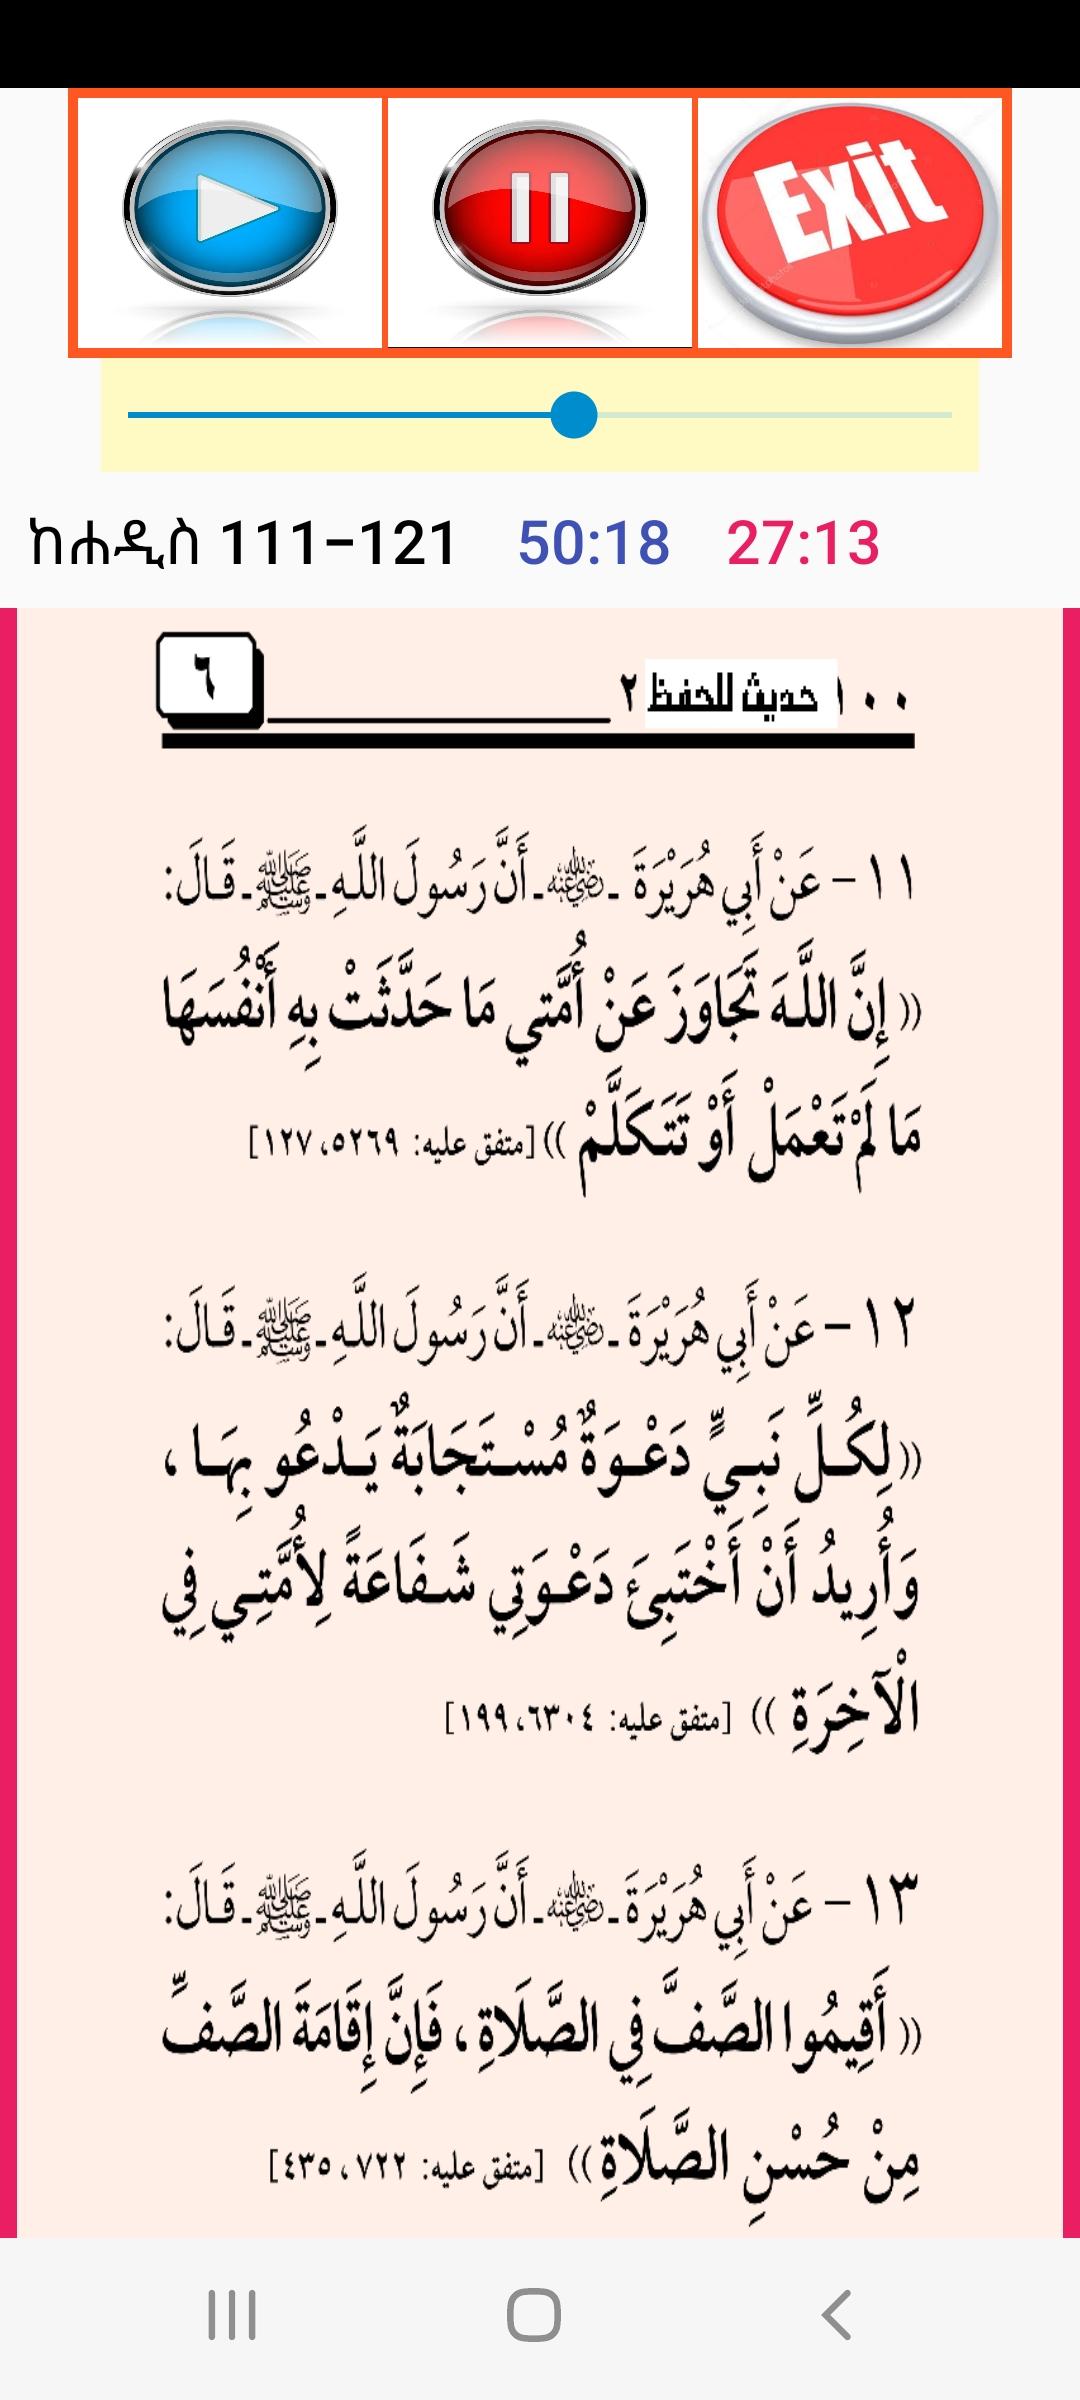 Exit
ከሐዲስ 111-121 50:18 27:13
١٠٠ حديث للحفظ ٢
٦
١١- عَنْ أَبِي هُرَيْرَةَ ـ رضي الله عنه ـ أَنَّ رَسُولَ اللَّهِ ـ ﷺ ـ قَالَ:
(( إِنَّ اللَّهَ تَجَاوَزَ عَنْ أُمَّتي مَا حَدَّثَتْ بِهِ أَنْفُسَهَا
مَا لَمْ تَعْمَلْ أَوْ تَتَكَلَّمْ )) [متفق عليه: ٥٢٦٩، ١٢٧]
١٢- عَنْ أَبِي هُرَيْرَةَ ـ رضي الله عنه ـ أَنَّ رَسُولَ اللَّهِ ـ ﷺ ـ قَالَ:
((لِكُلِّ نَبِيٍّ دَعْوَةٌ مُسْتَجَابَةٌ يَدْعُو بِهَا ،
وَأُرِيدُ أَنْ أَخْتَبِئَ دَعْوَتِي شَفَاعَةً لِأُمَّتِي فِي
الْآخِرَةِ )) [متفق عليه: ٦٣٠٤، ١٩٩]
١٣- عَنْ أَبِي هُرَيْرَةَ ـ رضي الله عنه ـ أَنَّ رَسُولَ اللَّهِ ـ ﷺ ـ قَالَ:
(( أَقِيمُوا الصَّفَّ فِي الصَّلَاةِ ، فَإِنَّ إِقَامَةَ الصَّفِّ
مِنْ حُسْنِ الصَّلَاةِ)) [متفق عليه: ٧٢٢، ٤٣٥]